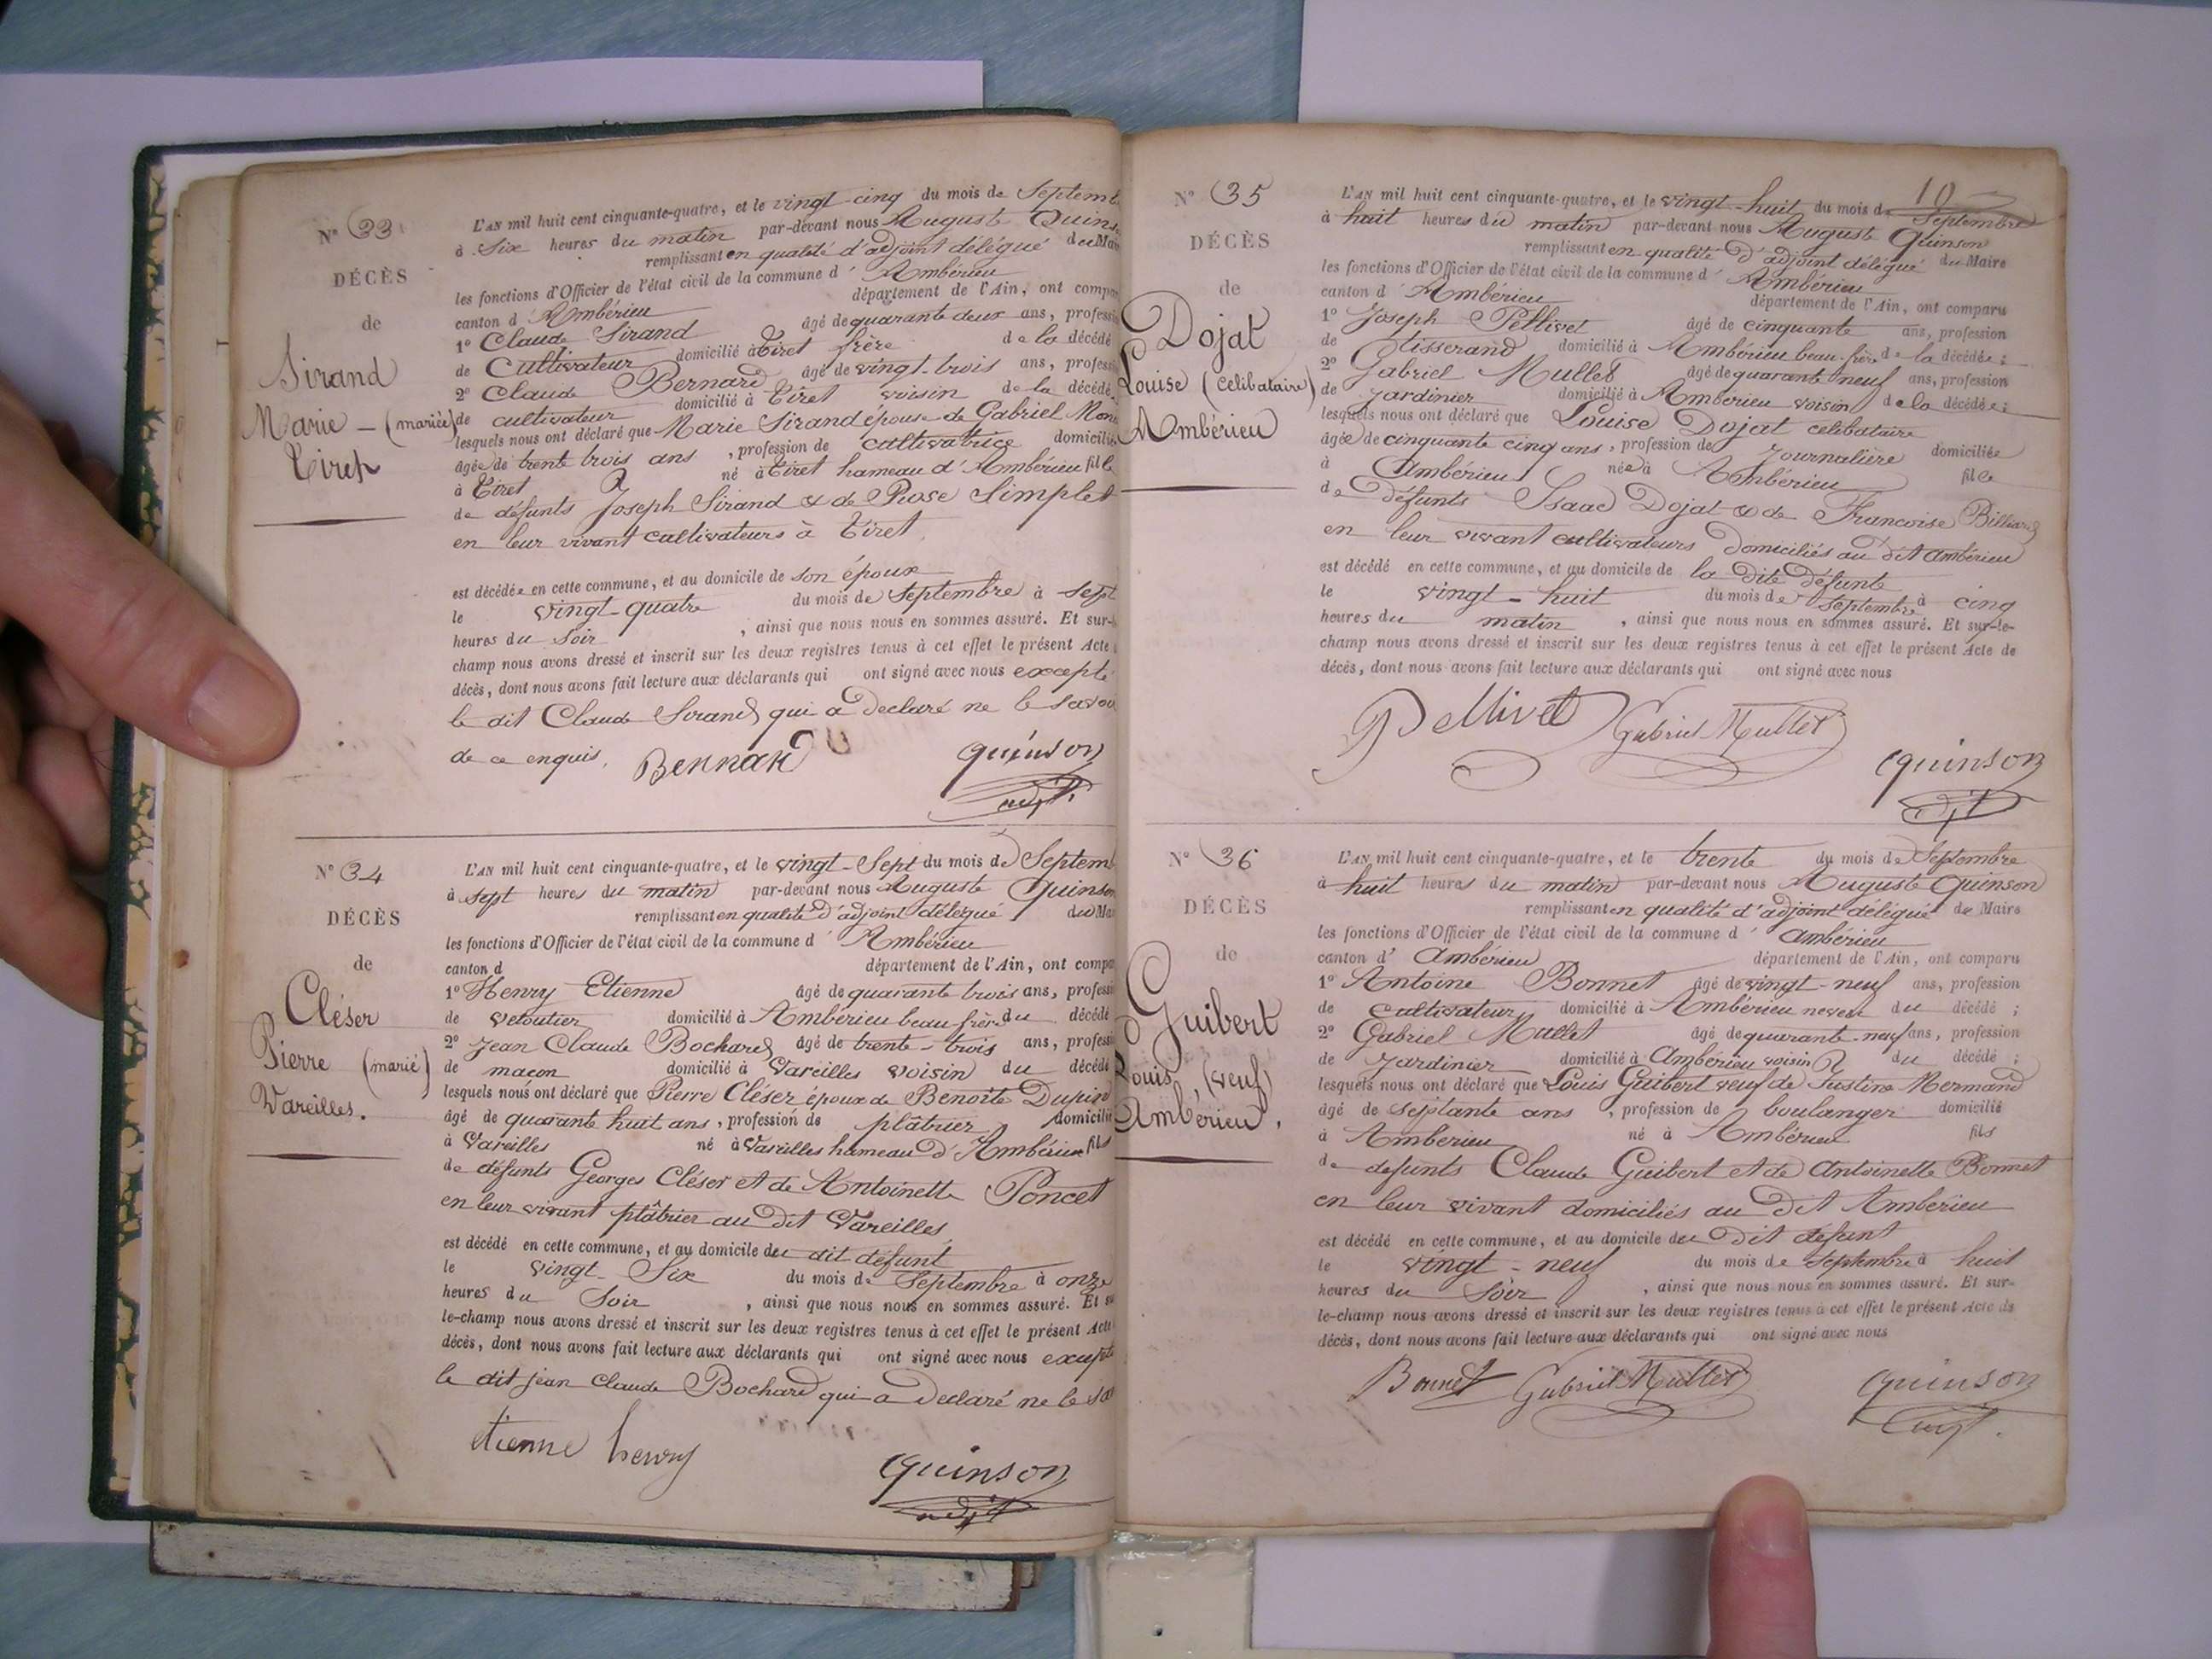 N° 33
DÉCÈS
de
Sirand
Marie - (mariée)
Tiret
L'AN mil huit cent cinquante-quatre, et le vingt cinq du mois de Septemb
à Six heures du matin par-devant nous Auguste Quins
remplissant en qualité d'adjoint délégué du Mai
les fonctions d'Officier de l'état civil de la commune d' Ambérieu
canton d' Ambérieu département de l'Ain, ont compa
1° Claude Sirand âgé de quarante deux ans, professi
de Cultivateur domicilié à Tiret frère de la décédé
2° Claude Bernard âgé de vingt-trois ans, profess
de cultivateur domicilié à Tiret voisin de la décédé
lesquels nous ont déclaré que Marie Sirand épouse de Gabriel
âgée de trente trois ans, profession de cultivatrice domicilié
à Tiret né à Tiret hameau d'Ambérieu fille
de défunts Joseph Sirand & de Rose Simplet
en leur vivant cultivateurs à Tiret,
est décédée en cette commune, et au domicile de son époux
le vingt-quatre du mois de Septembre à sept
heures du Soir, ainsi que nous nous en sommes assuré. Et sur-le
champ nous avons dressé et inscrit sur les deux registres tenus à cet effet le présent Acte
décès, dont nous avons fait lecture aux déclarants qui ont signé avec nous excepté
le dit Claude Sirand qui a declaré ne le savoi
de ce enquis. Bernard Quinson
adjt.
N° 34
DÉCÈS
de
Cléser
Pierre (marié)
Vareilles.
L'AN mil huit cent cinquante-quatre, et le vingt-Sept du mois de Septem
à sept heures du matin par-devant nous Auguste Quinson
remplissant en qualité d'adjoint délégué du Ma
les fonctions d'Officier de l'état civil de la commune d' Ambérieu
canton d département de l'Ain, ont compa
1° Henry Etienne âgé de quarante trois ans, professi
de veloutier domicilié à Ambérieu beau frère du décédé
2° Jean Claude Bochard âgé de trente-trois ans, profess
de maçon domicilié à Vareilles voisin du décédé
lesquels nous ont déclaré que Pierre Cléser époux de Benoite Dupin
âgé de quarante huit ans, profession de plâtrier domicilié
à Vareilles né à Vareilles hameau d'Ambérieu fils
de défunts Georges Cléser et de Antoinette Poncet
en leur vivant plâtrier au dit Vareilles
est décédé en cette commune, et au domicile du dit défunt
le vingt-Six du mois de Septembre à onze
heures du Soir, ainsi que nous nous en sommes assuré. Et su
le-champ nous avons dressé et inscrit sur les deux registres tenus à cet effet le présent Acte
décès, dont nous avons fait lecture aux déclarants qui ont signé avec nous excepté
le dit jean Claude Bochard qui a declaré ne le sa
etienne henry
Quinson
adjt
10
N° 35
DÉCÈS
de
Dojat
Louise (celibataire)
Ambérieu
L'AN mil huit cent cinquante-quatre, et le vingt-huit du mois de Septembre
à huit heures du matin par-devant nous Auguste Quinson
remplissant en qualité d'adjoint délégué du Maire
les fonctions d'Officier de l'état civil de la commune d' Ambérieu
canton d' Ambérieu département de l'Ain, ont comparu
1° Joseph Pellivet âgé de cinquante ans, profession
de tisserand domicilié à Ambérieu beau-frère de la décédée ;
2° Gabriel Mullet âgé de quarante neuf ans, profession
de Jardinier domicilié à Ambérieu voisin de la décédée ;
lesquels nous ont déclaré que Louise Dojat celibataire
âgée de cinquante cinq ans, profession de Journalière domiciliée
à Ambérieu née à Ambérieu fille
de défunts Isaac Dojat & de Francoise Billiard
en leur vivant cultivateurs domiciliés au dit Ambérieu
est décédé en cette commune, et au domicile de la dite défunte
le vingt-huit du mois de Septembre à cinq
heures du matin, ainsi que nous nous en sommes assuré. Et sur-le-
champ nous avons dressé et inscrit sur les deux registres tenus à cet effet le présent Acte de
décès, dont nous avons fait lecture aux déclarants qui ont signé avec nous
Pellivet Gabriel Mullet
Quinson
adjt
N° 36
DÉCÈS
de
Guibert
Louis, (veuf)
Ambérieu,
L'AN mil huit cent cinquante-quatre, et le trente du mois de Septembre
à huit heures du matin par-devant nous Auguste Quinson
remplissant en qualité d'adjoint délégué de Maire
les fonctions d'Officier de l'état civil de la commune d' Ambérieu
canton d' Ambérieu département de l'Ain, ont comparu
1° Antoine Bonnet âgé de vingt-neuf ans, profession
de Cultivateur domicilié à Ambérieu neveu du décédé ;
2° Gabriel Mullet âgé de quarante-neuf ans, profession
de Jardinier domicilié à Ambérieu voisin du décédé ;
lesquels nous ont déclaré que Louis Guibert veuf de Justine Mermand
âgé de septante ans, profession de boulanger domicilié
à Ambérieu né à Ambérieu fils
de défunts Claude Guibert et de Antoinette Bonnet
en leur vivant domiciliés au dit Ambérieu
est décédé en cette commune, et au domicile du dit défunt
le vingt-neuf du mois de Septembre à huit
heures du Soir, ainsi que nous nous en sommes assuré. Et sur-
le-champ nous avons dressé et inscrit sur les deux registres tenus à cet effet le présent Acte de
décès, dont nous avons fait lecture aux déclarants qui ont signé avec nous
Bonnet Gabriel Mullet Quinson
adjt.